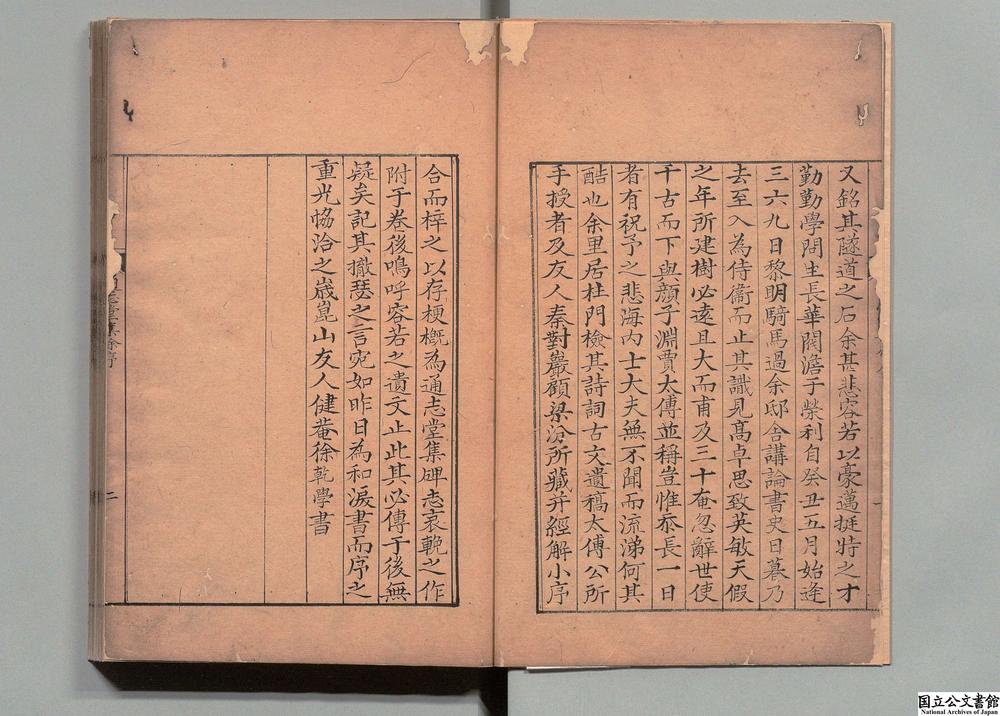 又銘其隧道之石余甚悲容若以豪邁挺特之才
勤勤學問生長華閥澹于榮利自癸丑五月始逢
三六九日黎明騎馬過余邸舍講論書史日暮乃
去至入為侍衞而止其識見髙卓思致英敏天假
之年所建樹必遠且大而甫及三十奄忽辭世使
千古而下與顔子淵賈太傅並稱豈惟忝長一日
者有祝予之悲海内士大夫無不聞而流涕何其
酷也余里居杜門檢其詩詞古文遺稿太傅公所
手授者及友人秦對巖顧梁汾所藏并經解小序
合而梓之以存梗概為通志堂集碑志哀輓之作
附于卷後嗚呼容若之遺文止此其必傳于後無
疑矣記其撤瑟之言宛如昨日為和淚書而序之
重光協洽之歲崑山友人健菴徐乾學書
二
国立公文書館
National Archives of Japan